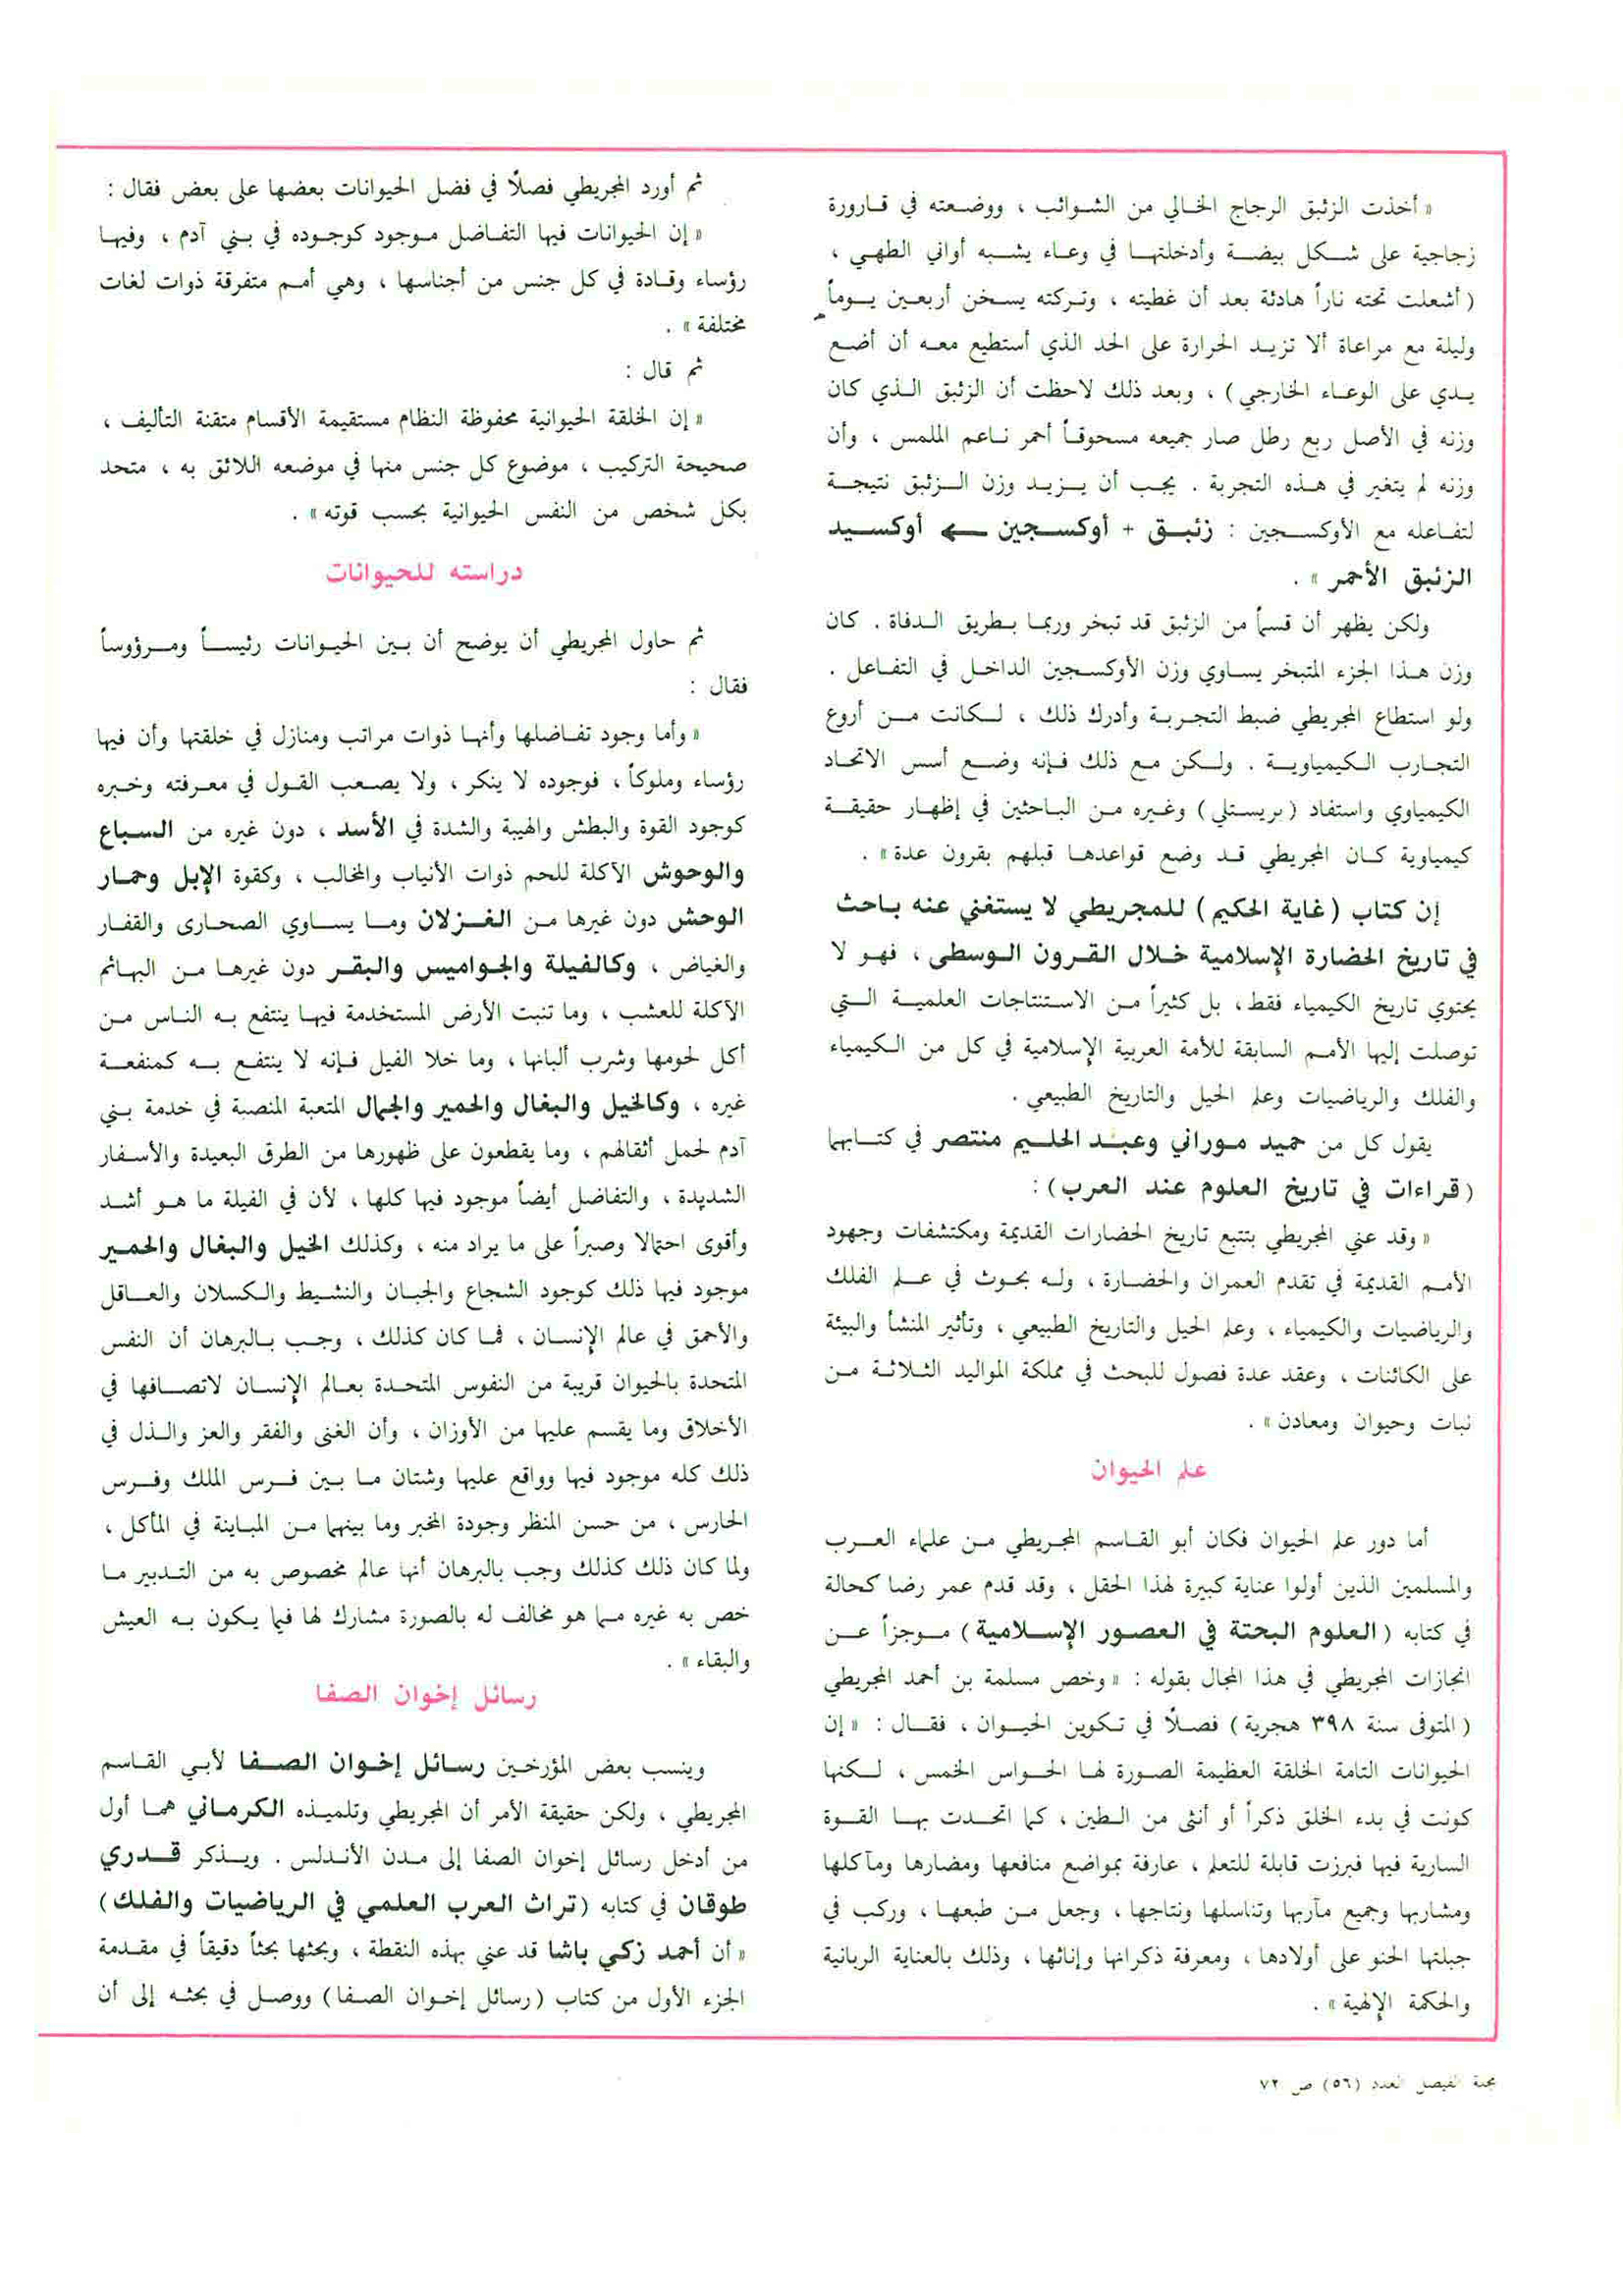 « أخذت الزئبق الرجاج الخالي من الشوائب ، ووضعته في قارورة
زجاجية على شكل بيضة وأدخلتها في وعاء يشبه أواني الطهي ،
( أشعلت تحته ناراً هادئة بعد أن غطيته ، وتركته يسخن أربعين يوماً
وليلة مع مراعاة ألا تزيد الحرارة على الحد الذي أستطيع معه أن أضع
يدي على الوعاء الخارجي ) ، وبعد ذلك لاحظت أن الزئبق الذي كان
وزنه في الأصل ربع رطل صار جميعه مسحوقاً أحمر ناعم الملمس ، وأن
وزنه لم يتغير في هذه التجربة . يجب أن يزيد وزن الزئبق نتيجة
لتفاعله مع الأوكسجين : زئبق + أوكسجين ← أوكسيد
الزئبق الأحمر » .
ولكن يظهر أن قسماً من الزئبق قد تبخر وربما بطريق الدفاة . كان
وزن هذا الجزء المتبخر يساوي وزن الأوكسجين الداخل في التفاعل .
ولو استطاع المجريطي ضبط التجربة وأدرك ذلك ، لكانت من أروع
التجارب الكيمياوية . ولكن مع ذلك فإنه وضع أسس الاتحاد
الكيمياوي واستفاد ( بريستلي ) وغيره من الباحثين في إظهار حقيقة
كيمياوية كان المجريطي قد وضع قواعدها قبلهم بقرون عدة » .
إن كتاب ( غاية الحكيم ) للمجريطي لا يستغني عنه باحث
في تاريخ الحضارة الإسلامية خلال القرون الوسطى ، فهو لا
يحتوي تاريخ الكيمياء فقط ، بل كثيراً من الاستنتاجات العلمية التي
توصلت إليها الأمم السابقة للأمة العربية الإسلامية في كل من الكيمياء
والفلك والرياضيات وعلم الحيل والتاريخ الطبيعي .
يقول كل من حميد موراني وعبد الحليم منتصر في كتابهما
( قراءات في تاريخ العلوم عند العرب ) :
« وقد عني المجريطي بتتبع تاريخ الحضارات القديمة ومكتشفات وجهود
الأمم القديمة في تقدم العمران والحضارة ، وله بحوث في علم الفلك
والرياضيات والكيمياء ، وعلم الحيل والتاريخ الطبيعي ، وتأثير المنشأ والبيئة
على الكائنات ، وعقد عدة فصول للبحث في مملكة المواليد الثلاثة من
نبات وحيوان ومعادن » .
علم الحيوان
أما دور علم الحيوان فكان أبو القاسم المجريطي من علماء العرب
والمسلمين الذين أولوا عناية كبيرة لهذا الحقل ، وقد قدم عمر رضا كحالة
في كتابه ( العلوم البحتة في العصور الإسلامية ) موجزاً عن
انجازات المجريطي في هذا المجال بقوله : « وخص مسلمة بن أحمد المجريطي
( المتوفى سنة ٣٩٨ هجرية ) فصلاً في تكوين الحيوان ، فقال : « إن
الحيوانات التامة الخلقة العظيمة الصورة لها الحواس الخمس ، لكنها
كونت في بدء الخلق ذكراً أو أنثى من الطين ، كما اتحدت بها القوة
السارية فيها فبرزت قابلة للتعلم ، عارفة بمواضع منافعها ومضارها ومآكلها
ومشاربها وجميع مآربها وتناسلها ونتاجها ، وجعل من طبعها ، وركب في
جبلتها الحنو على أولادها ، ومعرفة ذكرانها وإناثها ، وذلك بالعناية الربانية
والحكمة الإلهية » .
ثم أورد المجريطي فصلاً في فضل الحيوانات بعضها على بعض فقال :
« إن الحيوانات فيها التفاضل موجود كوجوده في بني آدم ، وفيها
رؤساء وقادة في كل جنس من أجناسها ، وهي أمم متفرقة ذوات لغات
مختلفة » .
ثم قال :
« إن الخلقة الحيوانية محفوظة النظام مستقيمة الأقسام متقنة التأليف ،
صحيحة التركيب ، موضوع كل جنس منها في موضعه اللائق به ، متحد
بكل شخص من النفس الحيوانية بحسب قوته » .
دراسته للحيوانات
ثم حاول المجريطي أن يوضح أن بين الحيوانات رئيساً ومرؤوساً
فقال :
« وأما وجود تفاضلها وأنها ذوات مراتب ومنازل في خلقتها وأن فيها
رؤساء وملوكاً ، فوجوده لا ينكر ، ولا يصعب القول في معرفته وخبره
كوجود القوة والبطش والهيبة والشدة في الأسد ، دون غيره من السباع
والوحوش الآكلة للحم ذوات الأنياب والمخالب ، وكقوة الإبل وحمار
الوحش دون غيرها من الغزلان وما يساوي الصحارى والقفار
والغياض ، وكالفيلة والجواميس والبقر دون غيرها من البهائم
الآكلة للعشب ، وما تنبت الأرض المستخدمة فيها ينتفع به الناس من
أكل لحومها وشرب ألبانها ، وما خلا الفيل فإنه لا ينتفع به كمنفعة
غيره ، وكالخيل والبغال والحمير والجمال المتعبة المنصبة في خدمة بني
آدم لحمل أثقالهم ، وما يقطعون على ظهورها من الطرق البعيدة والأسفار
الشديدة ، والتفاضل أيضاً موجود فيها كلها ، لأن في الفيلة ما هو أشد
وأقوى احتمالا وصبراً على ما يراد منه ، وكذلك الخيل والبغال والحمير
موجود فيها ذلك كوجود الشجاع والجبان والنشيط والكسلان والعاقل
والأحمق في عالم الإنسان ، فما كان كذلك ، وجب بالبرهان أن النفس
المتحدة بالحيوان قريبة من النفوس المتحدة بعالم الإنسان لاتصافها في
الأخلاق وما يقسم عليها من الأوزان ، وأن الغنى والفقر والعز والذل في
ذلك كله موجود فيها وواقع عليها وشتان ما بين فرس الملك وفرس
الحارس ، من حسن المنظر وجودة المخبر وما بينهما من المباينة في المأكل ،
ولما كان ذلك كذلك وجب بالبرهان أنها عالم مخصوص به من التدبير ما
خص به غيره مما هو مخالف له بالصورة مشارك لها فيما يكون به العيش
والبقاء » .
رسائل إخوان الصفا
وينسب بعض المؤرخين رسائل إخوان الصفا لأبي القاسم
المجريطي ، ولكن حقيقة الأمر أن المجريطي وتلميذه الكرماني هما أول
من أدخل رسائل إخوان الصفا إلى مدن الأندلس . ويذكر قدري
طوقان في كتابه ( تراث العرب العلمي في الرياضيات والفلك )
« أن أحمد زكي باشا قد عني بهذه النقطة ، وبحثها بحثاً دقيقاً في مقدمة
الجزء الأول من كتاب ( رسائل إخوان الصفا ) ووصل في بحثه إلى أن
مجلة الفيصل العدد (٥٦) ص ٧٢